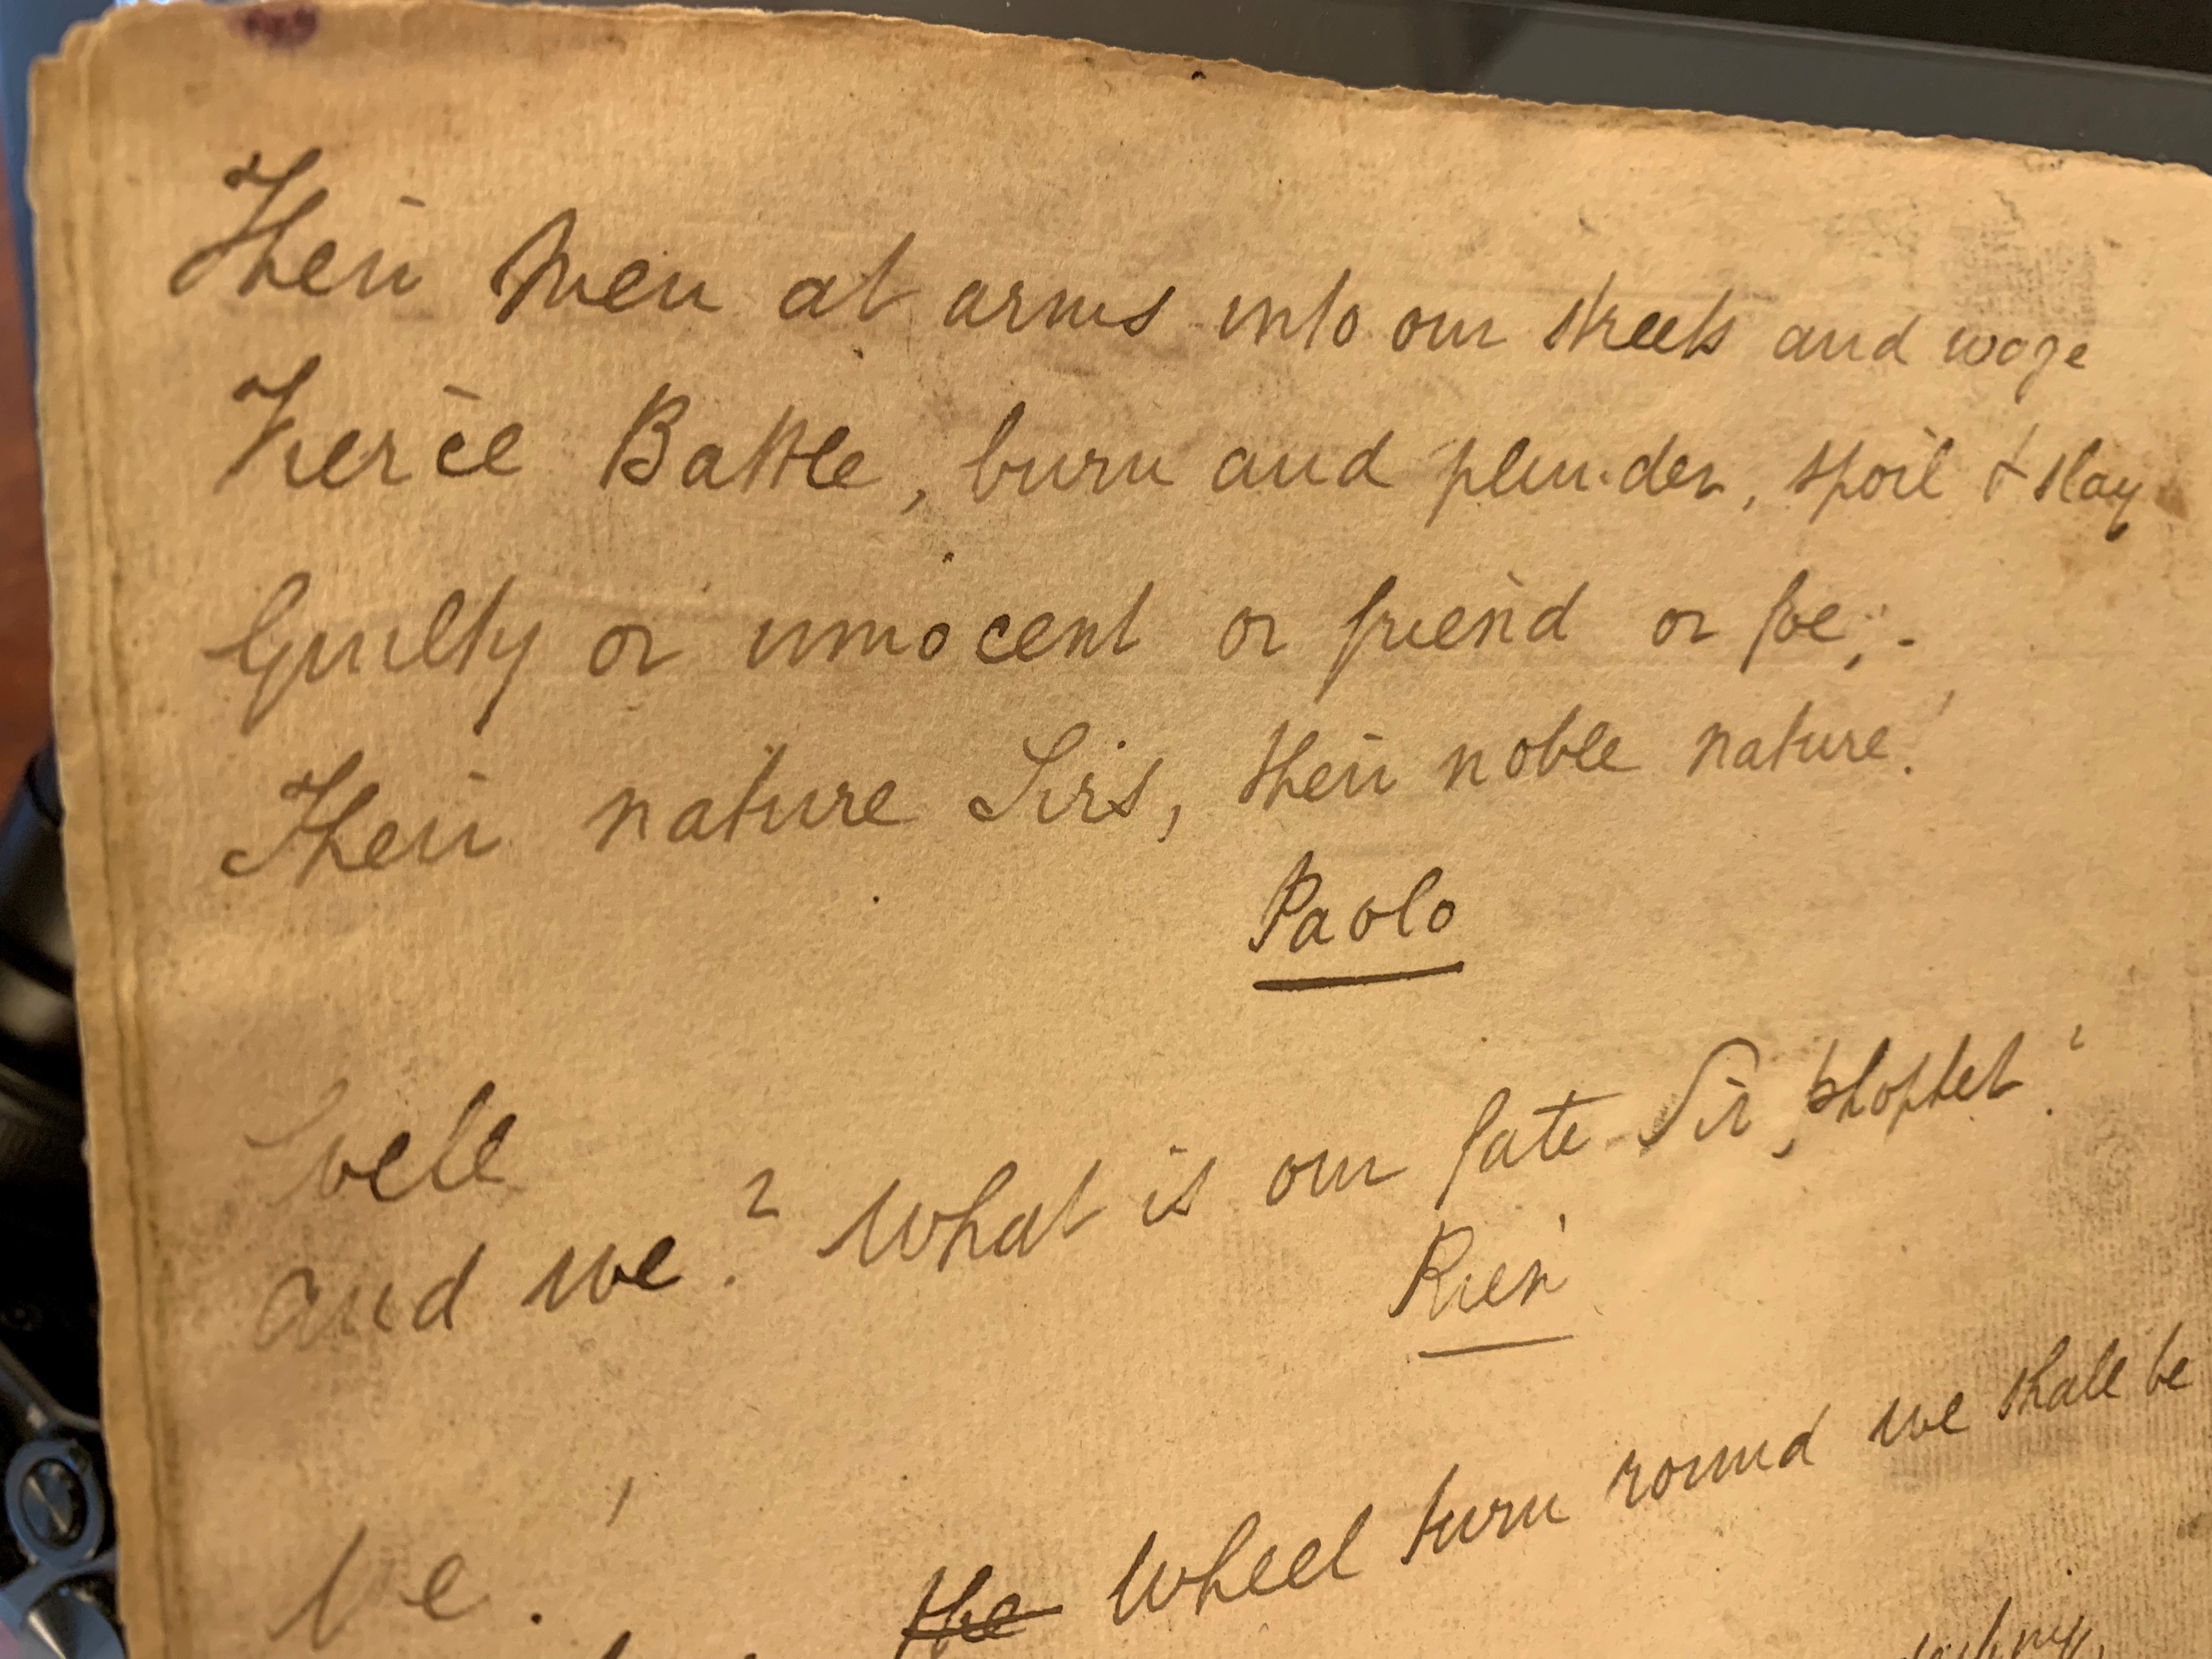 Their Men at arms into our streets and wage
Fierce Battle, burn and plunder, spoil & slay
Guilty or innocent or friend or foe;-
Their nature Sirs, their noble nature!
Paolo
Well
and we? What is our fate Sir, prophet?
Rien
We!
the Wheel turn round we shall be